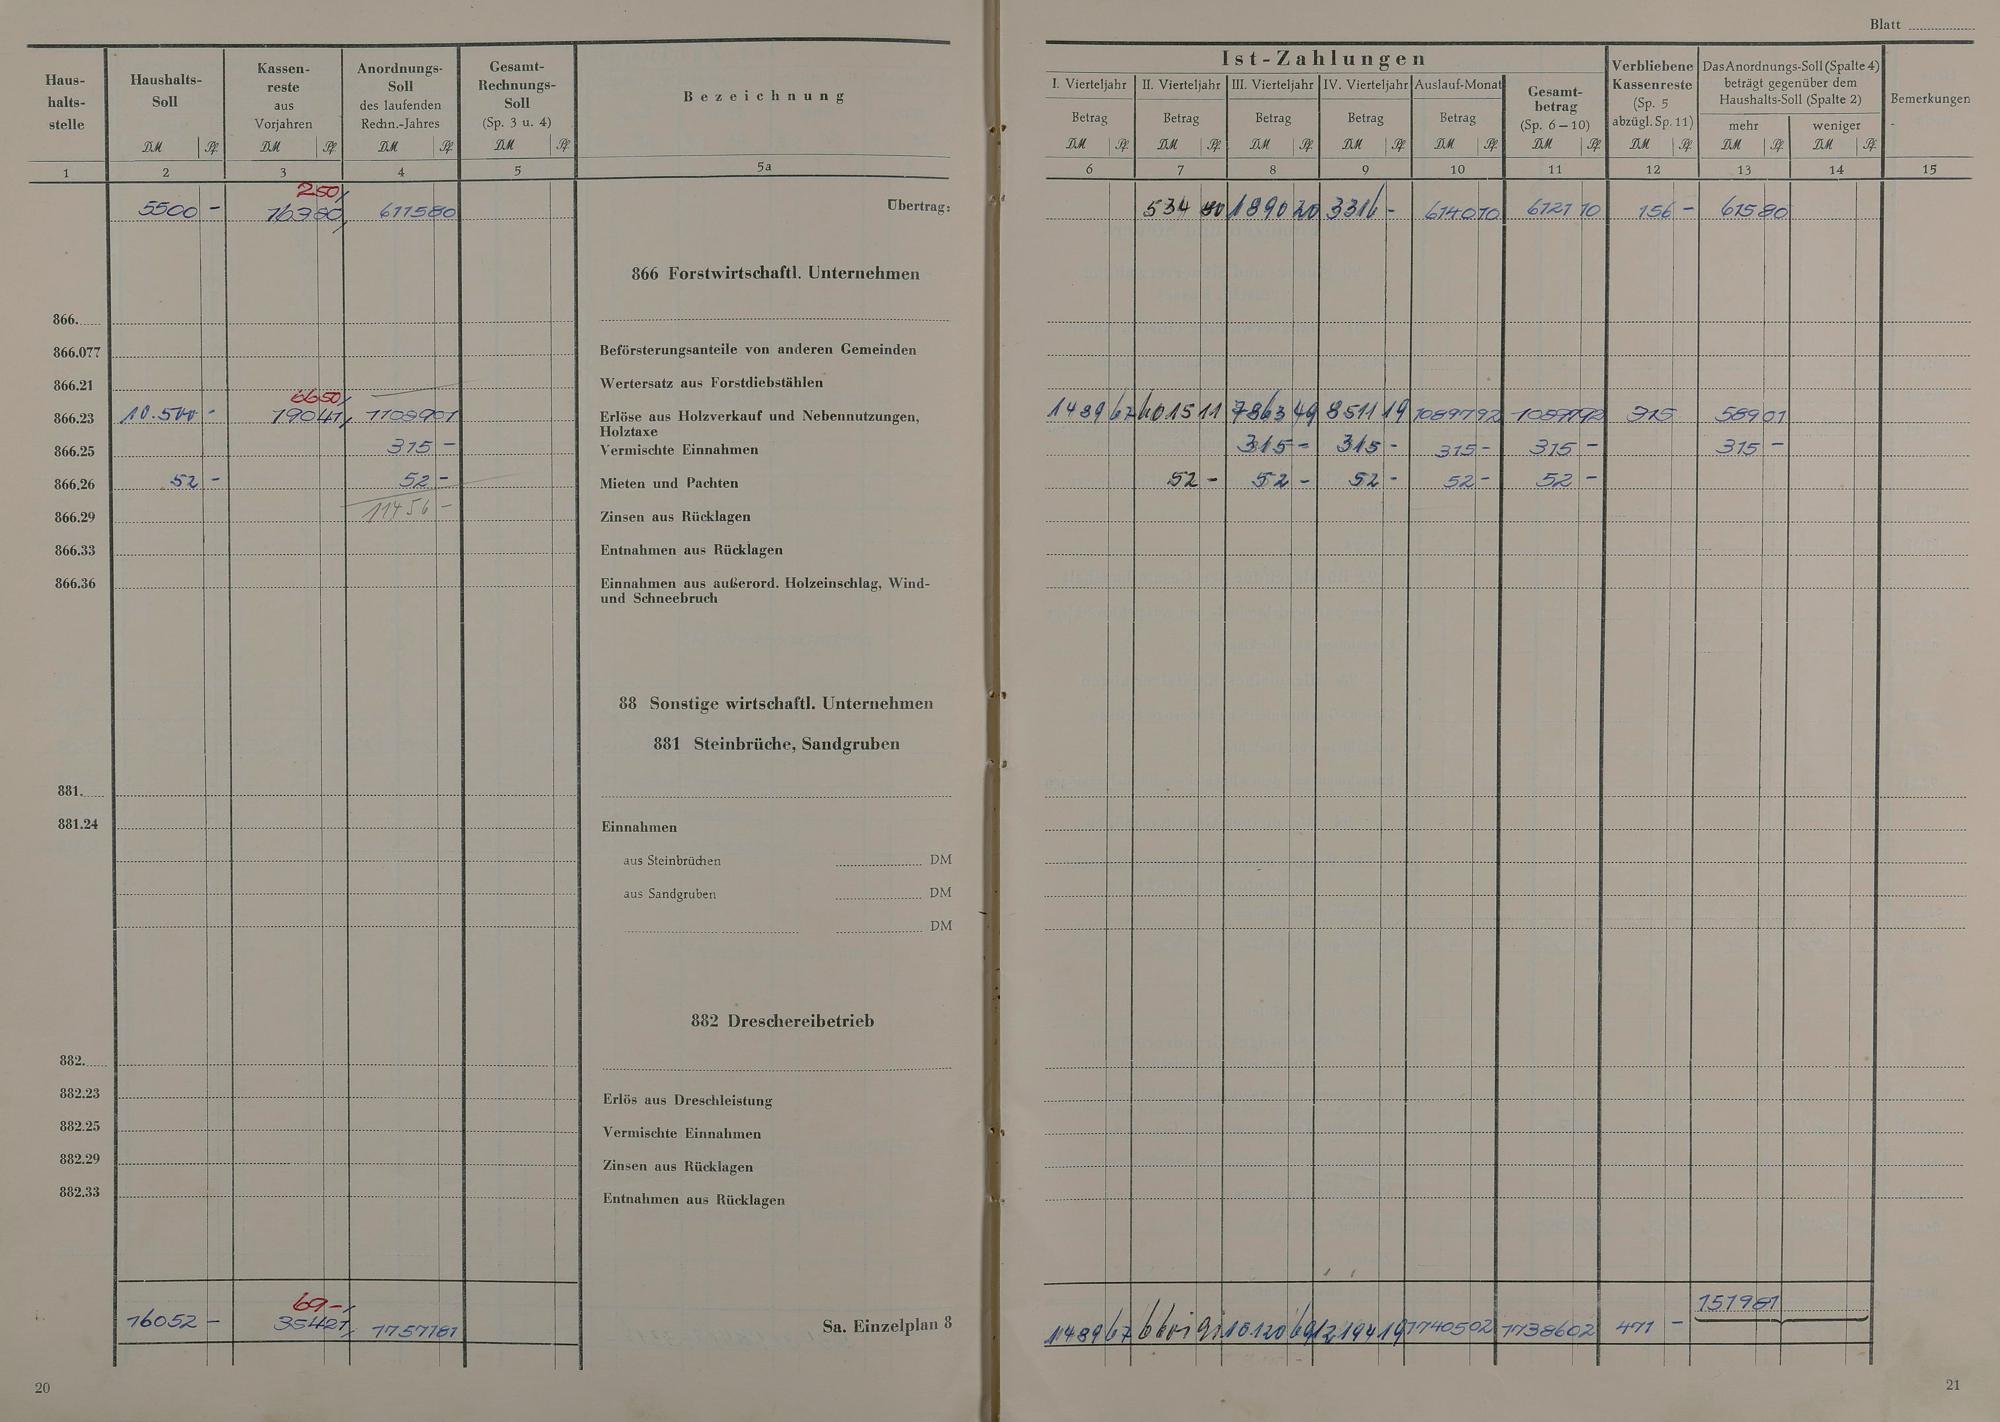 Blatt
Haus-
halts-
stelle
Haushalts-
Soll
Kassen-
reste
aus
Vorjahren
Anordnungs-
Soll
des laufenden
Rechn.-Jahres
Gesamt-
Rechnungs-
Soll
(Sp. 3 u. 4)
Bezeichnung
DM Pf DM Pf DM Pf DM Pf
1 2 3 4 5 5a
Ist-Zahlungen
I. Vierteljahr II. Vierteljahr III. Vierteljahr IV. Vierteljahr Auslauf-Monat
Betrag Betrag Betrag Betrag Betrag
Gesamt-
betrag
(Sp. 6 – 10)
Verbliebene
Kassenreste
(Sp. 5
abzügl. Sp. 11)
Das Anordnungs-Soll (Spalte 4)
beträgt gegenüber dem
Haushalts-Soll (Spalte 2)
mehr weniger
Bemerkungen
DM Pf DM Pf DM Pf DM Pf DM Pf DM Pf DM Pf DM Pf DM Pf
6 7 8 9 10 11 12 13 14 15
2 50
5500 - 6115 80 Übertrag: 534 80 1890 20 3316 - 6140 10 6121 10 156 - 615 80
866 Forstwirtschaftl. Unternehmen
866.
866.077 Beförsterungsanteile von anderen Gemeinden
866.21 Wertersatz aus Forstdiebstählen
66 50
866.23 10.500 - 190 41 11089 01 Erlöse aus Holzverkauf und Nebennutzungen, 1489 67 6015 11 7863 49 8511 19 10897 92 315 589 01
Holztaxe
866.25 315 - Vermischte Einnahmen 315 - 315 - 315 - 315 - 315 -
866.26 52 - 52 - Mieten und Pachten 52 - 52 - 52 - 52 - 52 -
11456 -
866.29 Zinsen aus Rücklagen
866.33 Entnahmen aus Rücklagen
866.36 Einnahmen aus außerord. Holzeinschlag, Wind-
und Schneebruch
88 Sonstige wirtschaftl. Unternehmen
881 Steinbrüche, Sandgruben
881.
881.24 Einnahmen
aus Steinbrüchen DM
aus Sandgruben DM
DM
882 Dreschereibetrieb
882.
882.23 Erlös aus Dreschleistung
882.25 Vermischte Einnahmen
882.29 Zinsen aus Rücklagen
882.33 Entnahmen aus Rücklagen
69 - 1519 81
16052 - 354 21 17571 81 Sa. Einzelplan 8 1489 67 10120 69 12194 19 17405 02 17386 02 471 -
20
21